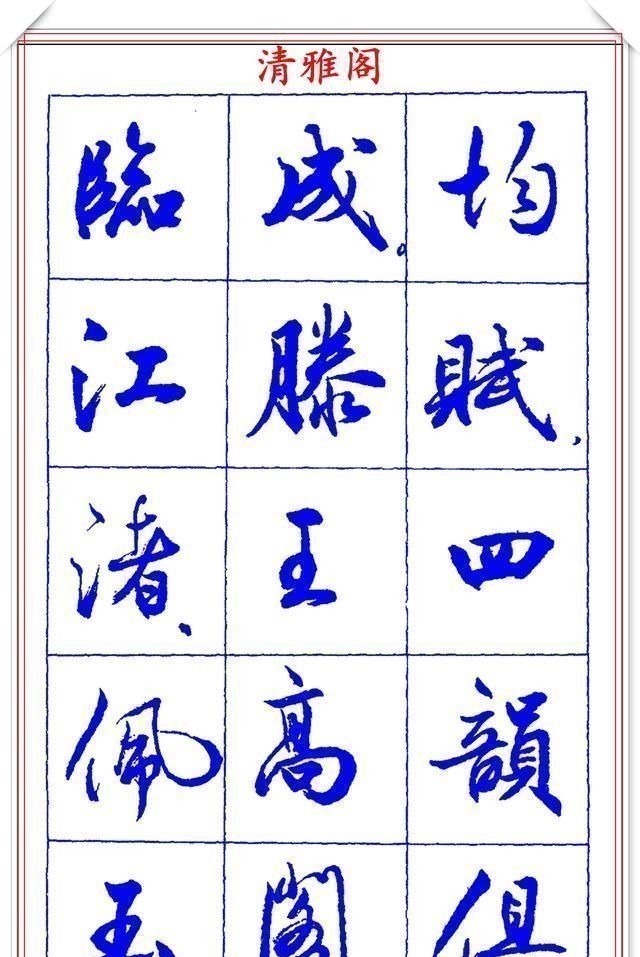 清雅阁
均賦，四韻俱
成。滕王高閣
臨江渚、佩玉